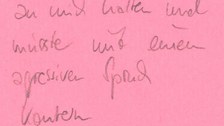 an und halten und
müsste mit einem
agressiven Spruch
kontern